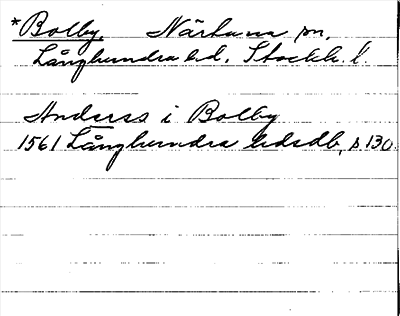 *Bolby, Närtuna sn,
Långhundra hd. Stockh. l.
Anderss i Bolby
1561 Långhundra hdsdb, s 130.